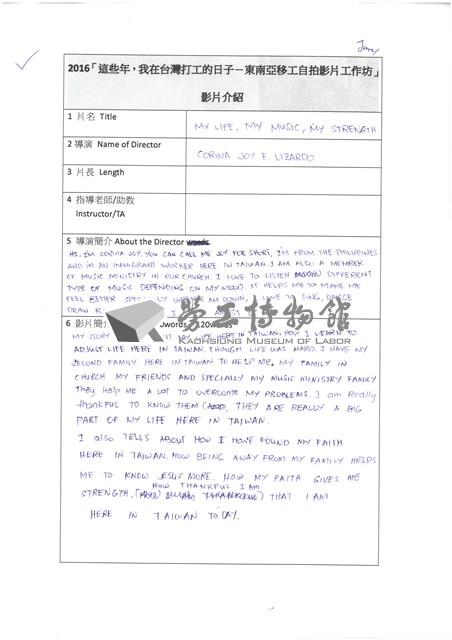 Jenny
2016「這些年，我在台灣打工的日子－東南亞移工自拍影片工作坊」
影片介紹
1 片名 Title
MY LIFE, MY MUSIC, MY STRENGTH
2 導演 Name of Director
CORINA JOY F. LIZARDO
3 片長 Length
4 指導老師/助教
Instructor/TA
5 導演簡介 About the Director
HI, I'M CORINA JOY. YOU CAN CALL ME JOY FOR SHORT, I'M FROM THE PHILIPPINES
AND I'M AN IMMIGRANT WORKER HERE IN TAIWAN. I AM ALSO A MEMBER
OF MUSIC MINISTRY IN OUR CHURCH. I LOVE TO LISTEN DIFFERENT
TYPE OF MUSIC DEPENDING ON MY MOOD. IT HELPS ME TO MAKE ME
FEEL BETTER WHEN I AM DOWN. I LOVE TO SING, DANCE
DRAW
勞工博物館
KAOHSIUNG MUSEUM OF LABOR
6 影片簡介
MY STORY MY LIFE HERE IN TAIWAN. HOW I LEARN TO
ADJUST LIFE HERE IN TAIWAN. THOUGH LIFE WAS HARD I HAVE MY
SECOND FAMILY HERE IN TAIWAN TO HELP ME. MY FAMILY IN
CHURCH MY FRIENDS AND SPECIALLY MY MUSIC MINISTRY FAMILY
They HELP ME A LOT TO OVERCOME MY PROBLEMS. I am Really
thankful TO KNOW THEM, THEY ARE REALLY A BIG
PART OF MY LIFE HERE IN TAIWAN.
I also TELLS ABOUT HOW I HAVE FOUND MY FAITH
HERE IN TAIWAN. HOW BEING AWAY FROM MY FAMILY HELPS
ME TO KNOW JESUS MORE. HOW MY FAITH GIVES ME
STRENGTH. HOW THANKFUL I AM THAT I AM
HERE IN TAIWAN TODAY.